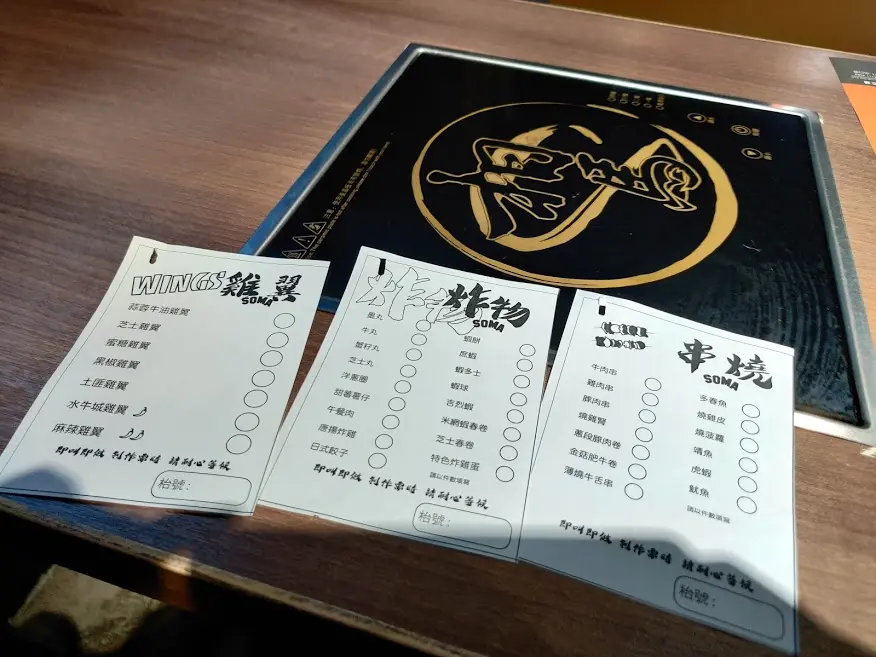 WINGS 雞翼
SOMA
蒜蓉牛油雞翼
芝士雞翼
蜜糖雞翼
黑椒雞翼
土匪雞翼
水牛城雞翼
麻辣雞翼
即叫即做 制作需時 請耐心等候
枱號：
炸物 炸物
SOMA
墨丸
牛丸
蟹籽丸
芝士丸
洋蔥圈
甜薯薯仔
午餐肉
唐揚炸雞
日式餃子
蝦餅
庶蝦
蝦多士
蝦球
吉烈蝦
米網蝦春卷
芝士春卷
特色炸雞蛋
請以件數填寫
即叫即做 制作需時 請耐心等候
枱號：
串燒
SOMA
牛肉串
雞肉串
豚肉串
燒雞腎
蔥段豚肉卷
金菇肥牛卷
薄燒牛舌串
多春魚
燒雞皮
燒菠蘿
鯖魚
虎蝦
魷魚
請以件數填寫
即叫即做 制作需時 請耐心等候
枱號：